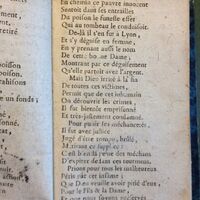 En chemin ce pauvre innocent
Sentoit dans ses entrailles
Du poison le funeste effet
Qui au tombeau le conduisoit.
De-là il s'en fut à Lyon,
Et s'y déguise en femme,
En y prenant aussi le nom
De cett bonne Dame,
Montrant par ce déguisement
Qu'elle partoit avec l'argent.
Mais Dieu irrité à la fin
De toutes ces victimes,
Permit que de cet inhumain
On découvrit les crimes;
Il fut bientôt emprisonné
Et très-justement condamné.
Pour punir ses méchancetés,
Il fut avec justice
Jugé d'être rompu, brûlé,
Méritant ce supplice:
C'est bien la peine des méchans
D'expirer dedans ces tourmens.
Prions pour tous les malheureux
Péris par cet infame:
Que Dieu veuille avoir pitié d'eux,
Pour le Fils & la Dame,
Et que nous soyons préservés
poison.
un fonds;